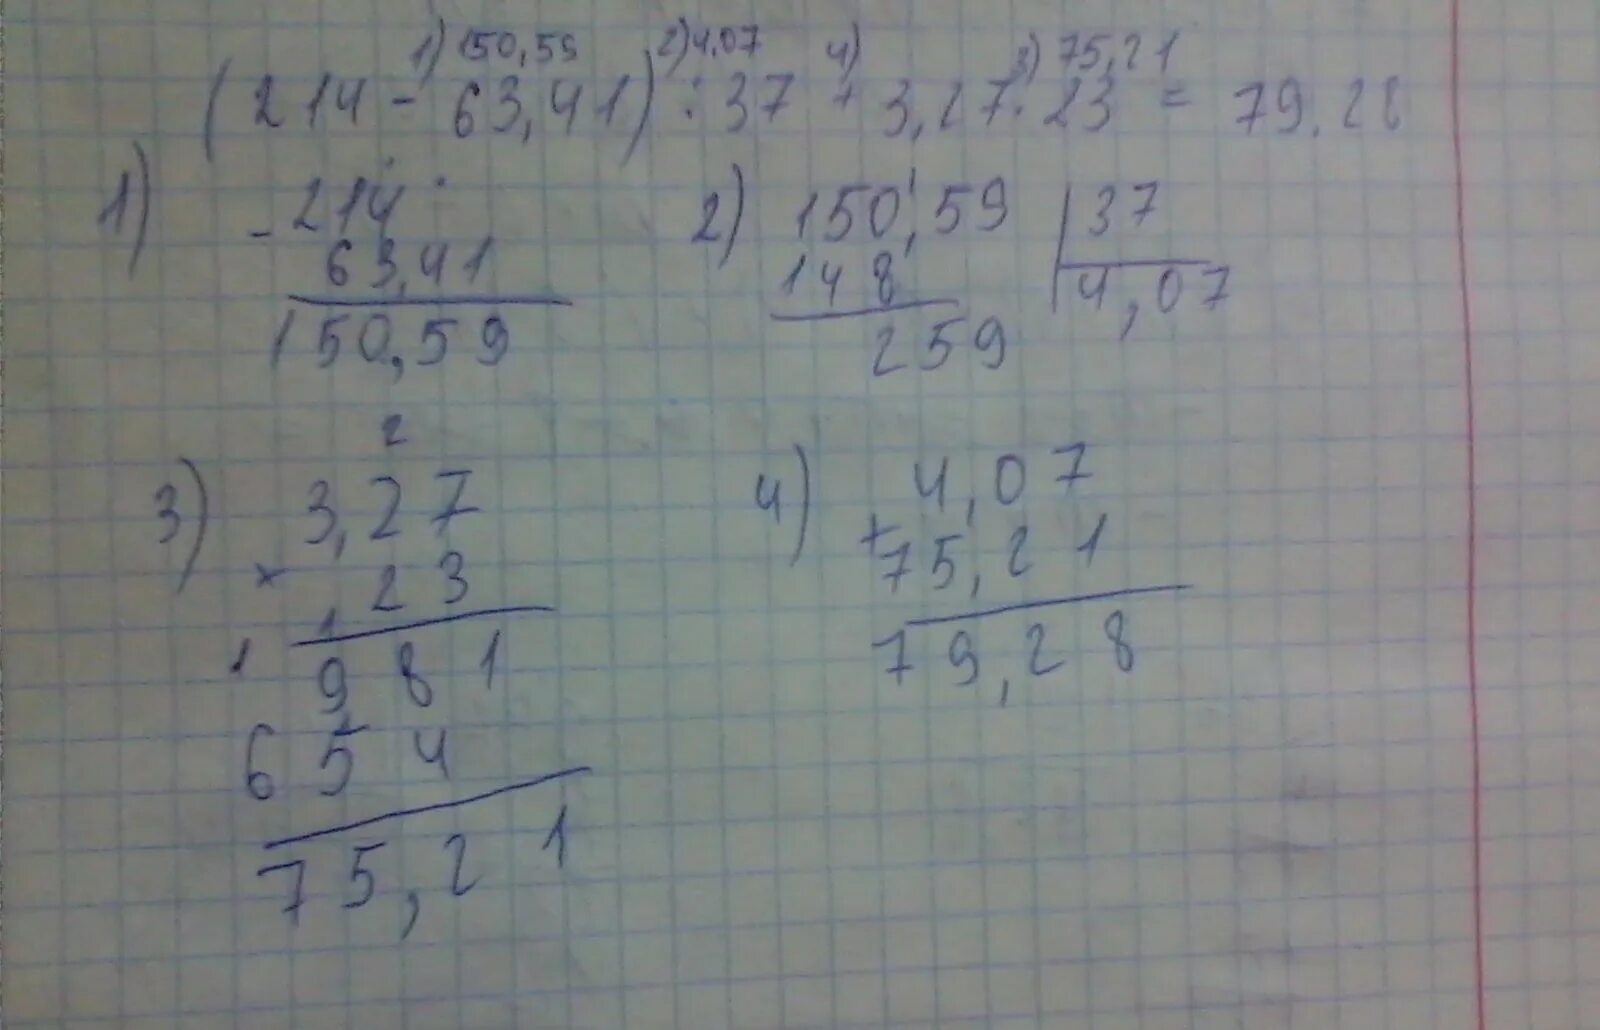 1) 150,59 2) 4,07 4) 3) 75,21
(214 - 63,41) : 37 + 3,27 · 23 = 79,28
1) - 214
63,41
150,59
2) 150,59 | 37
148 4,07
259
3) 2
3,27
× 23
1 1
981
654
75,21
4) 4,07
+ 75,21
79,28